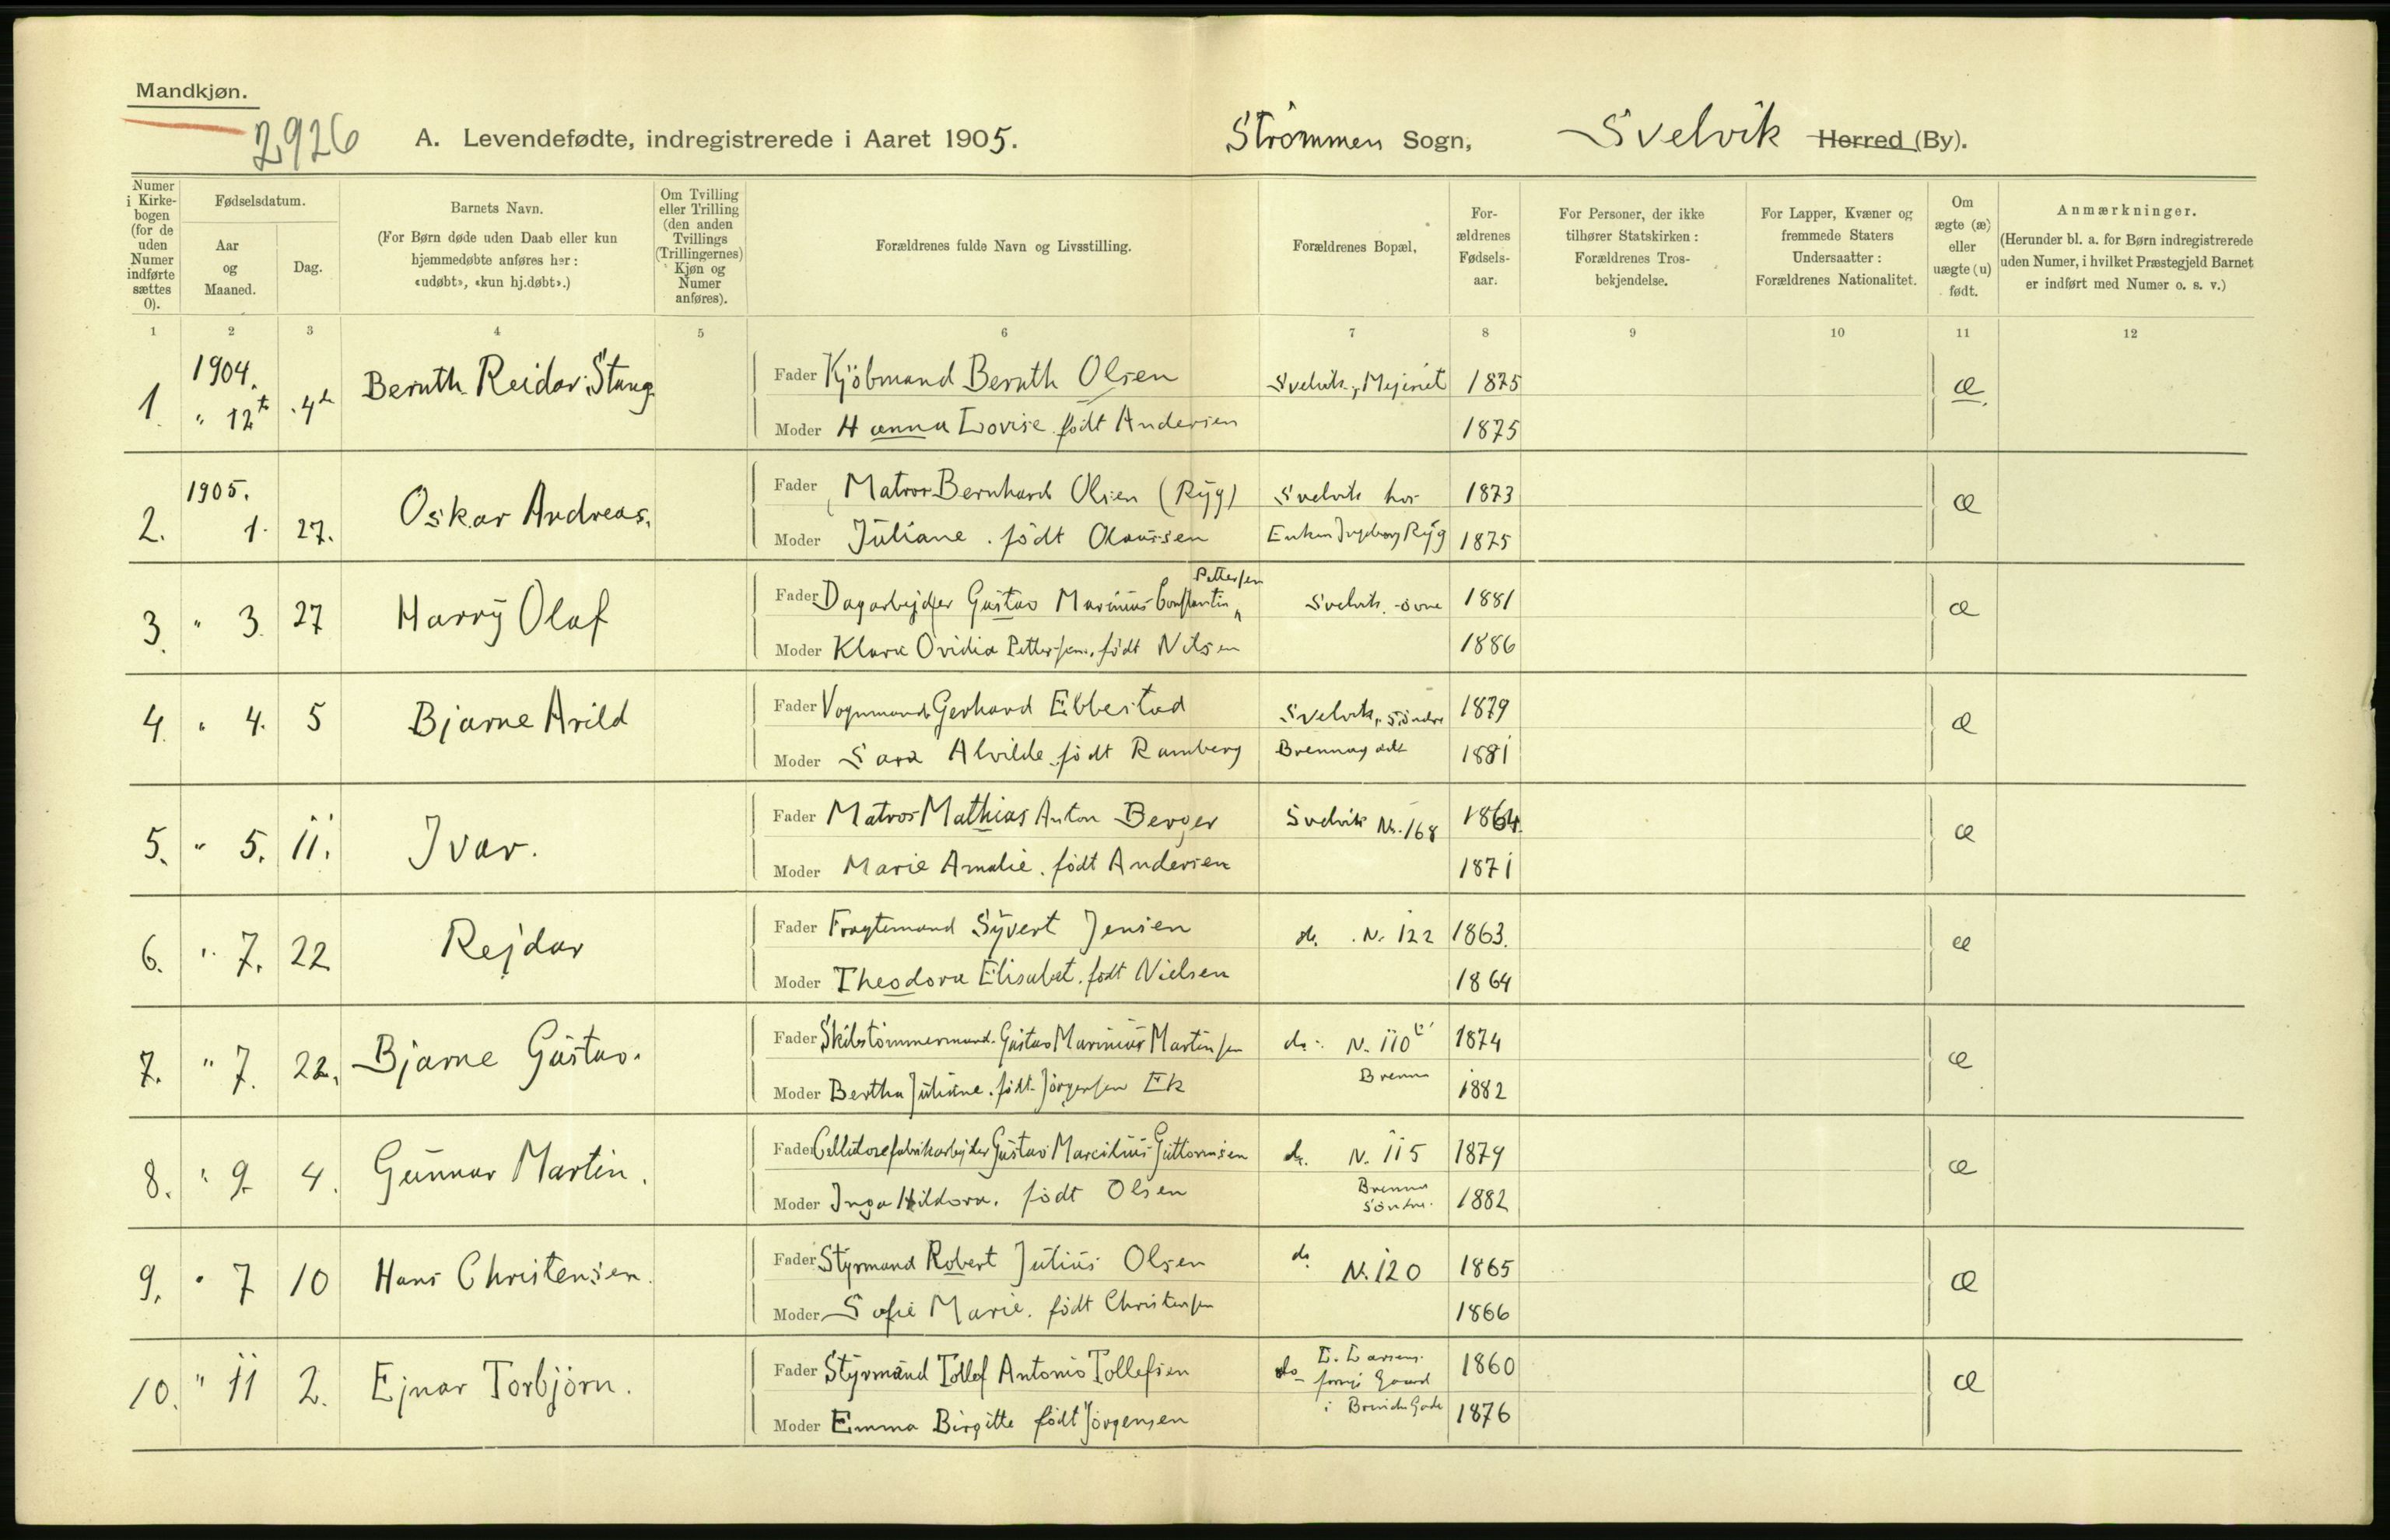 Mandkjøn.
2926
A. Levendefødte, indregistrerede i Aaret 1905.
Strömmen Sogn, Svelvik Herred (By).
Numer i Kirkebogen (for de uden Numer indførte sættes 0).
Fødselsdatum.
Aar og Maaned.
Dag.
Barnets Navn.
(For Børn døde uden Daab eller kun hjemmedøbte anføres her: «udøbt», «kun hj.døbt».)
Om Tvilling eller Trilling (den anden Tvillings (Trillingernes) Kjøn og Numer anføres).
Forældrenes fulde Navn og Livsstilling.
Forældrenes Bopæl.
Forældrenes Fødselsaar.
For Personer, der ikke tilhører Statskirken: Forældrenes Trosbekjendelse.
For Lapper, Kvæner og fremmede Staters Undersaatter: Forældrenes Nationalitet.
Om ægte (æ) eller uægte (u) født.
Anmærkninger.
(Herunder bl. a. for Børn indregistrerede uden Numer, i hvilket Præstegjeld Barnet er indført med Numer o. s. v.)
1 2 3 4 5 6 7 8 9 10 11 12
1904.
1. " 12te 4de Bernth Reidar Stang
Fader Kjöbmand Bernth Olsen Svelvik, Mejeriet 1875 æ.
Moder Hanna Lovise født Andersen 1875
1905.
2. 1. 27. Oskar Andreas.
Fader Matros Bernhard Olsen (Ryg) Svelvik hos 1873 æ
Moder Juliane. født Olaussen Enken Ingeborg Ryg 1875
3. " 3. 27 Harry Olaf
Fader Dagarbejder Gustav Marinius Constantin Pettersen Svelvik. 1881 æ
Moder Klara Ovidia Pettersen, født Nilsen 1886
4. " 4. 5 Bjarne Arild
Fader Vognmand Gerhard Ebbestad Svelvik, Söndre 1879 æ
Moder Sara Alvilde født Ramberg 1881
5. " 5. 11. Ivar.
Fader Matros Mathias Anton Berger Svelvik No. 168 1864. æ
Moder Marie Amalie. født Andersen 1871
6. " 7. 22 Rejdar
Fader Fragtemand Syvert Jensen do. N. 122 1863. æ
Moder Theodora Elisabet. født Nielsen 1864
7. " 7. 22. Bjarne Gustav.
Fader Skibstömmermand. Gustav Marinius Martinsen do. N. 110b 1874 æ
Moder Bertha Juliane. født Jörgensen Ek Brenna 1882
8. " 9. 4. Gunnar Martin.
Fader Cellulosefabrikarbejder Gustav Marcilius Guttormsen do. N. 115 1879 æ
Moder Inga Hildora. født Olsen Brenna Söndre. 1882
9. " 7 10 Hans Christensen.
Fader Styrmand Robert Julius Olsen do N. 120 1865 æ
Moder Sofie Marie. født Christensen 1866
10. " 11 2. Ejnar Torbjörn.
Fader Styrmand Tollef Antonio Tollefsen do L. Larsens 1860 æ
Moder Emma Birgitte født Jörgensen 1876